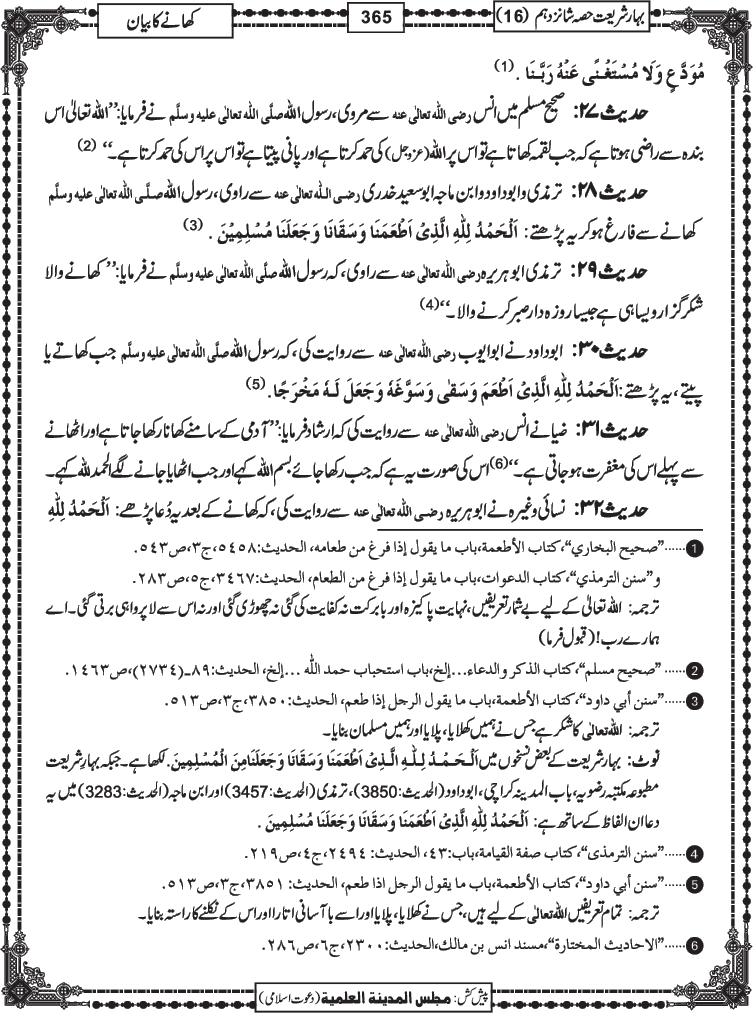 بہارِ شریعت حصہ شانزدہم (16)
365
کھانے کا بیان
مُوَدَّعٍ وَلَا مُسْتَغْنًی عَنْہُ رَبَّنَا . (1)
حدیث ۲۷: صحیح مسلم میں انس رضی اللہ تعالٰی عنہ سے مروی، رسول اللہ صلَّی اللہ تعالٰی علیہ وسلَّم نے فرمایا: ’’اللہ تعالیٰ اس
بندہ سے راضی ہوتا ہے کہ جب لقمہ کھاتا ہے تو اس پر اللہ (عزوجل) کی حمد کرتا ہے اور پانی پیتا ہے تو اس پر اس کی حمد کرتا ہے۔‘‘ (2)
حدیث ۲۸: ترمذی و ابوداود و ابن ماجہ ابوسعید خدری رضی اللہ تعالٰی عنہ سے راوی، رسول اللہ صلَّی اللہ تعالٰی علیہ وسلَّم
کھانے سے فارغ ہو کر یہ پڑھتے: اَلْحَمْدُ لِلّٰہِ الَّذِیْ اَطْعَمَنَا وَسَقَانَا وَجَعَلَنَا مُسْلِمِیْنَ . (3)
حدیث ۲۹: ترمذی ابوہریرہ رضی اللہ تعالٰی عنہ سے راوی، کہ رسول اللہ صلَّی اللہ تعالٰی علیہ وسلَّم نے فرمایا: ’’کھانے والا
شکر گزار ویسا ہی ہے جیسا روزہ دار صبر کرنے والا۔‘‘ (4)
حدیث ۳۰: ابوداود نے ابوایوب رضی اللہ تعالٰی عنہ سے روایت کی، کہ رسول اللہ صلَّی اللہ تعالٰی علیہ وسلَّم جب کھاتے یا
پیتے، یہ پڑھتے: اَلْحَمْدُ لِلّٰہِ الَّذِیْ اَطْعَمَ وَسَقٰی وَسَوَّغَہٗ وَجَعَلَ لَہٗ مَخْرَجًا. (5)
حدیث ۳۱: ضیا نے انس رضی اللہ تعالٰی عنہ سے روایت کی کہ ارشاد فرمایا: ’’آدمی کے سامنے کھانا رکھا جاتا ہے اور اٹھانے
سے پہلے اس کی مغفرت ہوجاتی ہے۔‘‘ (6) اس کی صورت یہ ہے کہ جب رکھا جائے بسم اللہ کہے اور جب اٹھایا جانے لگے الحمدللہ کہے۔
حدیث ۳۲: نسائی وغیرہ نے ابوہریرہ رضی اللہ تعالٰی عنہ سے روایت کی، کہ کھانے کے بعد یہ دُعا پڑھے: اَلْحَمْدُ لِلّٰہِ
1 ......’’صحيح البخاري‘‘، كتاب الأطعمة، باب ما يقول إذا فرغ من طعامه، الحديث: ۵۴۵۸، ج۳، ص۵۴۳.
و’’سنن الترمذي‘‘، كتاب الدعوات، باب ما يقول إذا فرغ من الطعام، الحديث: ۳۴۶۷، ج۵، ص۲۸۳.
ترجمہ: اللہ تعالیٰ کے لیے بے شمار تعریفیں، نہایت پاکیزہ اور بابرکت نہ کفایت کی گئی نہ چھوڑی گئی اور نہ اس سے لاپرواہی برتی گئی۔ اے
ہمارے رب! (قبول فرما)
2 ......’’صحيح مسلم‘‘، كتاب الذكر والدعاء...إلخ، باب استحباب حمد الله ...إلخ، الحديث: ۸۹۔(۲۷۳۴)، ص۱۴۶۳.
3 ......’’سنن أبي داود‘‘، كتاب الأطعمة، باب ما يقول الرجل إذا طعم، الحديث: ۳۸۵۰، ج۳، ص۵۱۳.
ترجمہ: اللہ تعالیٰ کا شکر ہے جس نے ہمیں کھلایا، پلایا اور ہمیں مسلمان بنایا۔
نوٹ: بہارِ شریعت کے بعض نسخوں میں اَلْحَمْدُ لِلّٰہِ الَّذِیْ اَطْعَمَنَا وَسَقَانَا وَجَعَلَنَا مِنَ الْمُسْلِمِیْنَ. لکھا ہے۔ جبکہ بہارِ شریعت
مطبوعہ مکتبہ رضویہ، باب المدینہ کراچی، ابوداود (الحدیث: 3850)، ترمذی (الحدیث: 3457) اور ابن ماجہ (الحدیث: 3283) میں یہ
دعا ان الفاظ کے ساتھ ہے: اَلْحَمْدُ لِلّٰہِ الَّذِیْ اَطْعَمَنَا وَسَقَانَا وَجَعَلَنَا مُسْلِمِیْنَ .
4 ......’’سنن الترمذی‘‘، كتاب صفة القيامة، باب: ۴۳، الحديث: ۲۴۹۴، ج۴، ص۲۱۹.
5 ......’’سنن أبي داود‘‘، كتاب الأطعمة، باب ما يقول الرجل اذا طعم، الحديث: ۳۸۵۱، ج۳، ص۵۱۳.
ترجمہ: تمام تعریفیں اللہ تعالیٰ کے لیے ہیں، جس نے کھلایا، پلایا اور اسے با آسانی اتارا اور اس کے نکلنے کا راستہ بنایا۔
6 ......’’الاحاديث المختارة‘‘، مسند انس بن مالك، الحديث: ۲۳۰۰، ج۶، ص۲۸۶.
پیش کش: مجلس المدینۃ العلمیۃ (دعوتِ اسلامی)